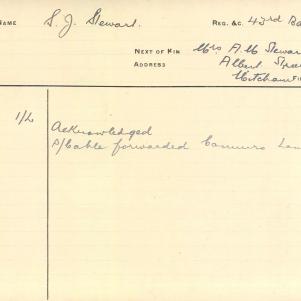 NAME S. J. Stewart. REG. &C. 43rd Ba
NEXT OF KIN Mrs A. M. Stewar
ADDRESS Albert Stree
Mitcham
1/2 Acknowledged
P/Cable forwarded Commrs Lon